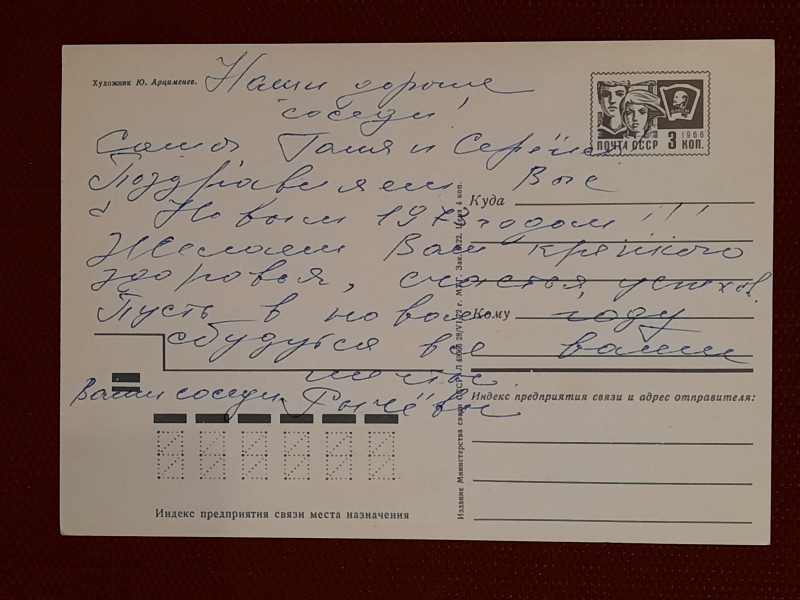 Художник Ю. Арцименев.
Наши дорогие
соседи!
Саша Галя и Серёжа
Поздравляем Вас
с Новым 1973 годом!!!
Желаем Вам крепкого
здоровья, счастья, успехов.
Пусть в новом году
сбудутся все ваши
мечты.
Ваши соседи
ПОЧТА СССР 3 КОП.
1966
Куда
Кому
Индекс предприятия связи и адрес отправителя:
Индекс предприятия связи места назначения
Издание Министерства связи СССР. Цена 4 коп.